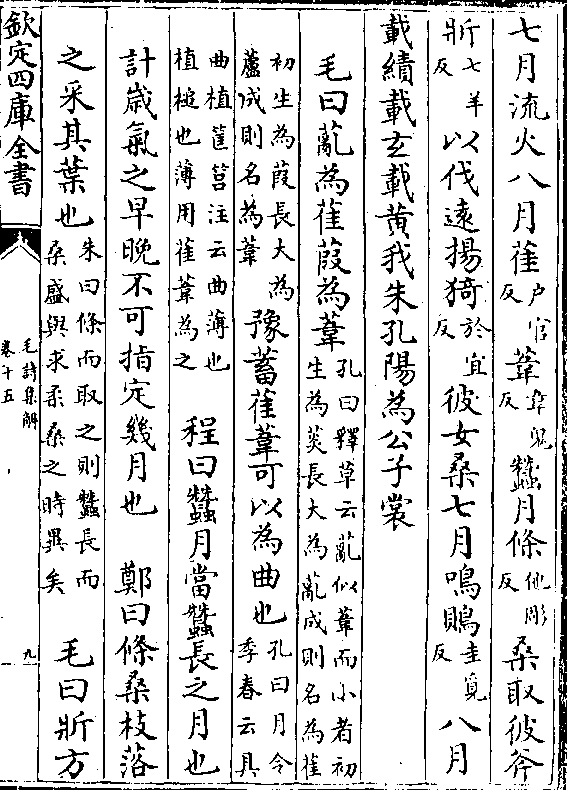 七月流火八月萑戶官反葦韋鬼反蠶月條他彫反桑取彼斧
斨七羊反以伐遠揚猗於宜反彼女桑七月鳴鵙圭覓反八月
載績載玄載黃我朱孔陽為公子裳
毛曰薍為萑葭為葦孔曰釋草云薍似葦而小者初生為菼長大為薍成則名為萑
初生為葭長大為蘆成則名為葦豫蓄萑葦可以為曲也孔曰月令季春云具
曲植筐筥注云曲薄也植槌也薄用萑葦為之程曰蠶月當蠶長之月也
計歲氣之早晚不可指定幾月也 鄭曰條桑枝落
之采其葉也朱曰條而取之則蠶長而桑盛與求柔桑之時異矣毛曰斨方
欽定四庫全書
毛詩集解
卷十五
九